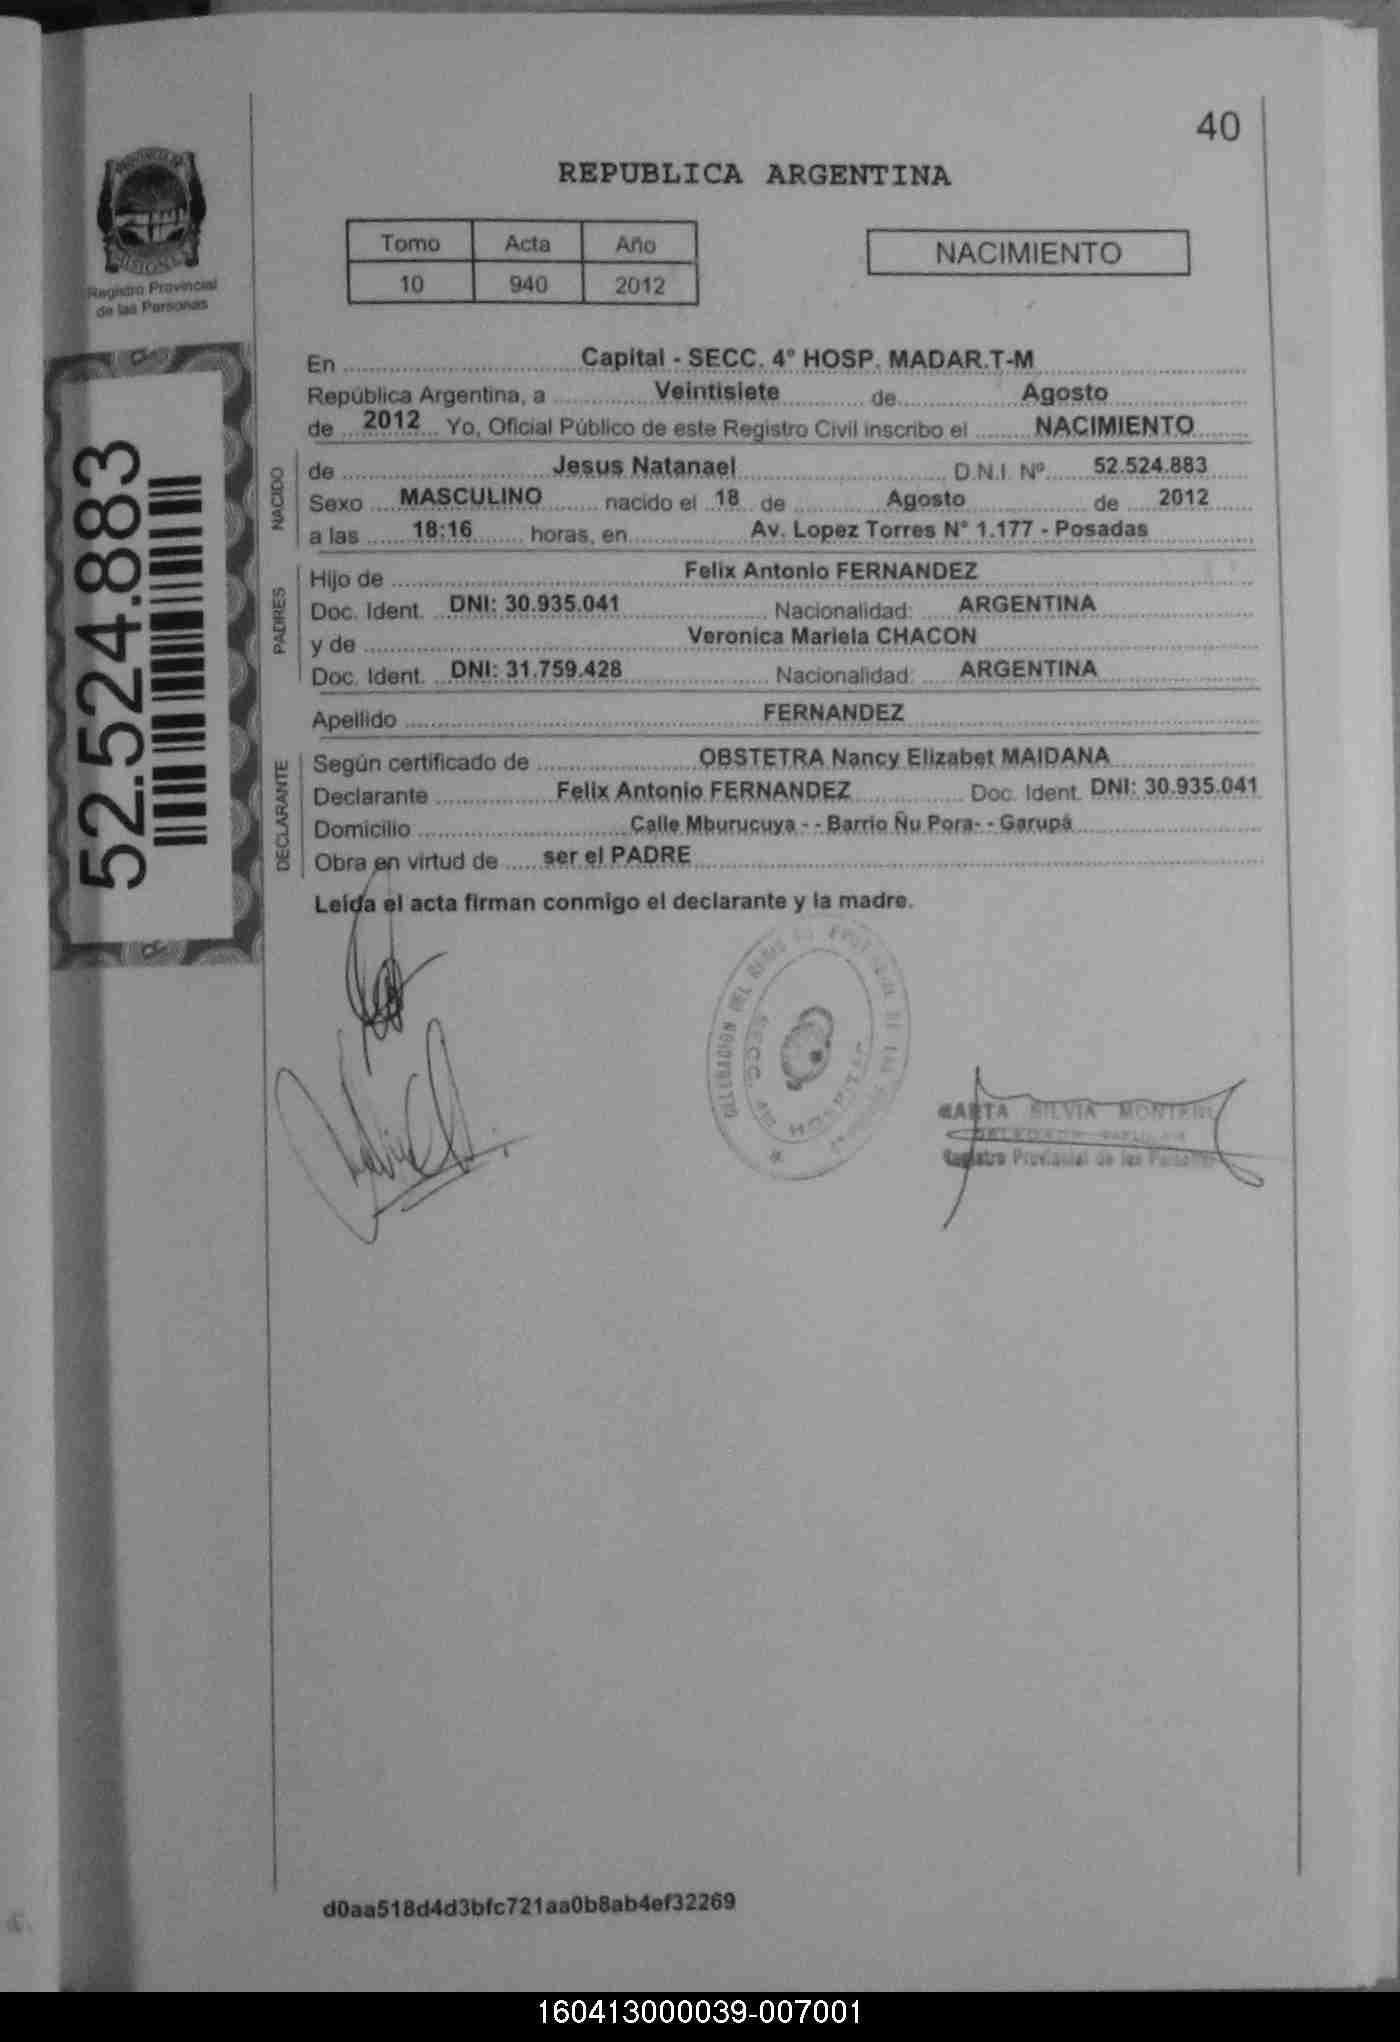 40
REPUBLICA ARGENTINA
PROVINCIA DE
MISIONES
Registro Provincial
de las Personas
Tomo Acta Año
10 940 2012
NACIMIENTO
52.524.883
En Capital - SECC. 4° HOSP. MADAR.T-M
República Argentina, a Veintisiete de Agosto
de 2012 Yo, Oficial Público de este Registro Civil inscribo el NACIMIENTO
NACIDO
de Jesus Natanael D.N.I. Nº 52.524.883
Sexo MASCULINO nacido el 18 de Agosto de 2012
a las 18:16 horas, en Av. Lopez Torres N° 1.177 - Posadas
PADRES
Hijo de Felix Antonio FERNANDEZ
Doc. Ident. DNI: 30.935.041 Nacionalidad: ARGENTINA
y de Veronica Mariela CHACON
Doc. Ident. DNI: 31.759.428 Nacionalidad: ARGENTINA
Apellido FERNANDEZ
DECLARANTE
Según certificado de OBSTETRA Nancy Elizabet MAIDANA
Declarante Felix Antonio FERNANDEZ Doc. Ident. DNI: 30.935.041
Domicilio Calle Mburucuya - - Barrio Ñu Pora- - Garupá
Obra en virtud de ser el PADRE
Leída el acta firman conmigo el declarante y la madre.
DELEGACION DEL
SECC. 4ª
HOSPITAL
SILVIA
Registro Provincial de las Personas
d0aa518d4d3bfc721aa0b8ab4ef32269
160413000039-007001